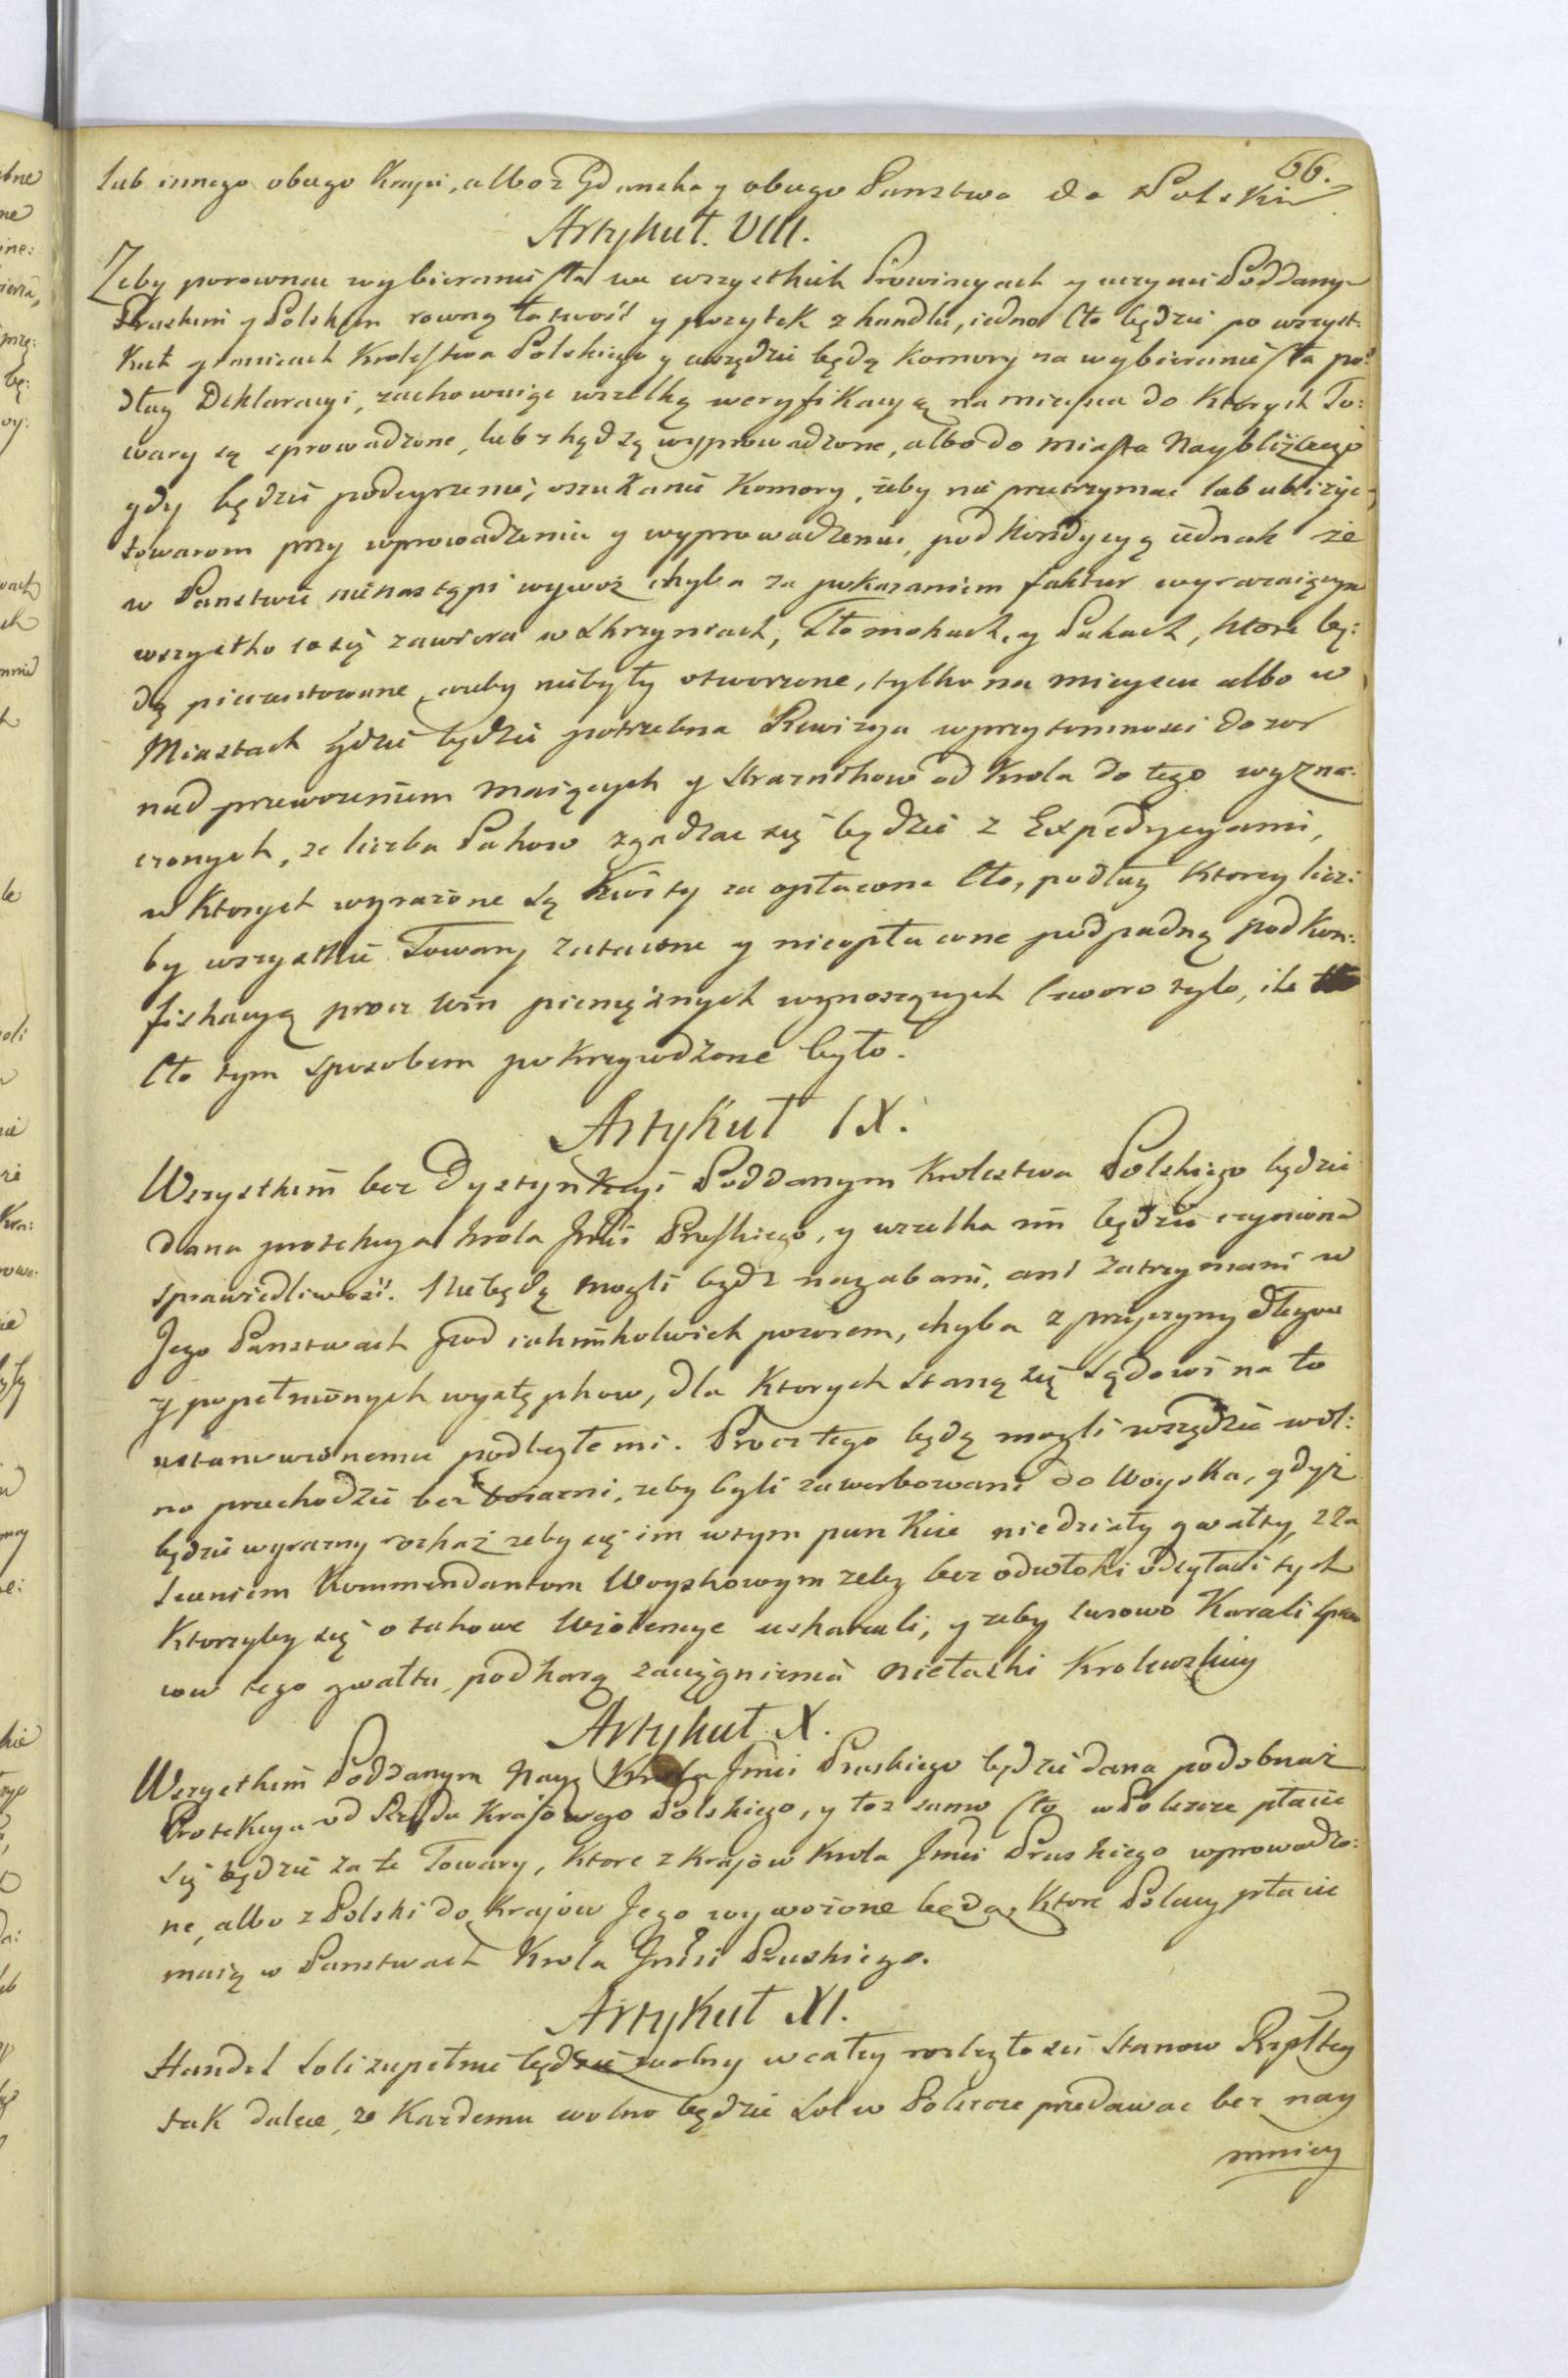 66.
lub innego obcego Kraju, albo z Gdanska y obcego Panstwa do Polski
Artykuł. VIII.
Żeby porownac wybieranie Cła we wszystkich Prowincyach y uczynic Poddanym
Pruskim y Polskim rowną łatwość y pozytek z handlu, iedno Cło będzie po wszyst:
kich granicach Krolestwa Polskiego y wszędzie będą Komory na wybieranie Cła po=
dług Deklaracyi, zachowuiąc wszelką weryfikacyą na mieysca do Ktorych To:
wary są sprowadzone, lub zkąd są wyprowadzone, albo do Miasta Naybliższego
gdy będzie podeyrzenie, oszukanie Komory, żeby nie przetrzymac lub ubliżyc
towarom przy wprowadzeniu y wyprowadzeniu, pod Kondycyą iednak że
w Panstwie nie nastąpi wywoz chyba za pokazaniem faktur wyrazaiących
wszystko co się zawiera w Skrzyniach, Tłomokach, y Pakach, ktore bę:
dą pieczętowane, żeby nie były otworzone, tylko na mieyscu albo w
Miastach gdzie będzie potrzebna Rewizya w przytomnosci dozor
nad przewozeniem maiących y Straznikow od Krola do tego wyzna:
czonych, ze liczba Pakow zgadzac się będzie z Expedycyami,
w Ktorych wyrażone są Kwity za opłacone Cło, podług Ktorey licz:
by wszystkie Towary zataione y nieopłacone podpadną pod Kon:
fiskacyą procz Win pieniężnych wynoszących Czworo tyle, ile
Cło tym sposobem pokrzywdzone było.
Artykuł IX.
Wszystkim bez Dystynkcyi Poddanym Krolestwa Polskiego będzie
dana protekcya Krola Jmci Pruskiego, y wszelka im będzie czyniona
sprawiedliwość. Nie będą mogli bydz nagabani, ani zatrzymani w
Jego Panstwach pod iakimkolwiek pozorem, chyba z przyczyny długow
y popełnionych występkow, dla Ktorych staną się Sądowi na to
ustanowionemu podległemi. Procz tego będą mogli wszędzie wol:
no przechodzić bez boiazni, zeby byli zawerbowani do Woyska, gdyż
będzie wyrazny rozkaz zeby się im w tym punkcie niedziały gwałty, z za
leceniem Kommendantom Woyskowym zeby bez odwłoki odsyłali tych
Ktorzyby się o takowe Wiolencye uskarzali, y zeby surowo Karali spraw
cow tego gwałtu, pod karą zaciągnienia niełaski Krolewskiey
Artykuł X.
Wszystkim Poddanym Nayj Krola Jmci Pruskiego będzie dana podobnaż
Protekcya od Rządu Krajowego Polskiego, y toz samo Cło w Polszcze płacic
się będzie za te Towary, Ktore z Krajow Krola Jmci Pruskiego wprowadzo:
ne, albo z Polski do Krajow Jego wywożone będą, Ktore Polacy płacic
maią w Panstwach Krola Jmci Pruskiego.
Artykuł XI.
Handel Soli zupełnie będzie wolny w całey rozległosci Stanow Rzpltey
tak dalece, ze Kazdemu wolno będzie Sol w Polszcze przedawac bez nay
mniey